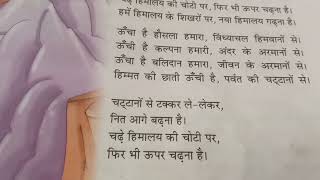 चढ़े हिमालय की चोटी पर, फिर भी ऊपर चढ़ना है।
हमें हिमालय के शिखरों पर, नया हिमालय गढ़ना है।
ऊँचा है हौसला हमारा, विंध्याचल हिमवानों से।
ऊँची है कल्पना हमारी, अंदर के अरमानों से।
ऊँचा है बलिदान हमारा, जीवन के अरमानों से।
हिम्मत की छाती ऊँची है, पर्वत की चट्टानों से।
चट्टानों से टक्कर ले-लेकर,
नित आगे बढ़ना है।
चढ़े हिमालय की चोटी पर,
फिर भी ऊपर चढ़ना है।